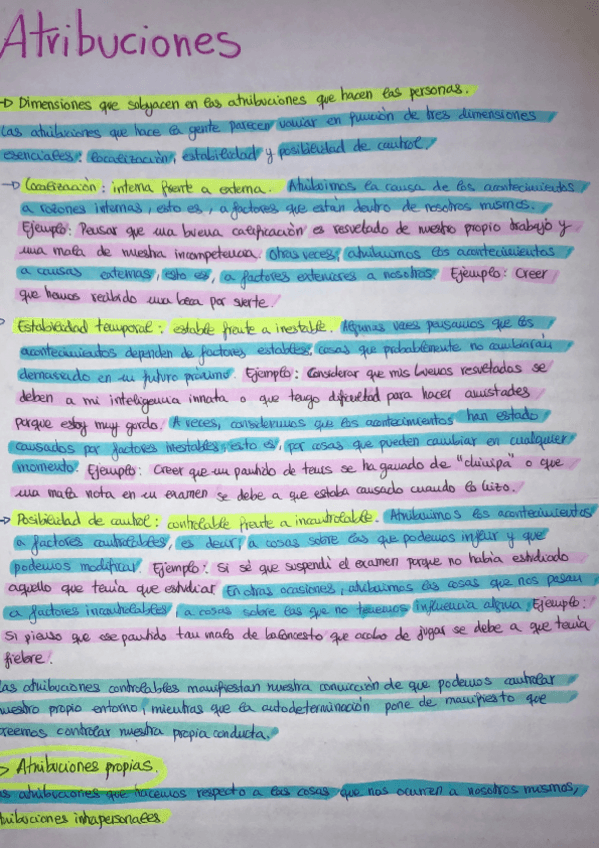 Atribuciones
→ Dimensiones que subyacen en las atribuciones que hacen las personas.
Las atribuciones que hace la gente parecen variar en función de tres dimensiones
esenciales: localización, estabilidad y posibilidad de control.
→ Localización: interna frente a externa. Atribuimos la causa de los acontecimientos
a razones internas, esto es, a factores que están dentro de nosotros mismos.
Ejemplo: Pensar que una buena calificación es resultado de nuestro propio trabajo y
una mala de nuestra incompetencia. Otras veces, atribuimos los acontecimientos
a causas externas, esto es, a factores exteriores a nosotros. Ejemplo: Creer
que hemos recibido una beca por suerte.
Estabilidad temporal: estable frente a inestable. Algunas veces pensamos que los
acontecimientos dependen de factores estables, cosas que probablemente no cambiarán
demasiado en un futuro próximo. Ejemplo: Considerar que mis buenos resultados se
deben a mi inteligencia innata o que tengo dificultad para hacer amistades
porque estoy muy gordo. A veces, consideramos que los acontecimientos han estado
causados por factores inestables, esto es, por cosas que pueden cambiar en cualquier
momento. Ejemplo: Creer que un partido de tenis se ha ganado de "chiripa" o que
una mala nota en un examen se debe a que estaba cansado cuando lo hizo.
→ Posibilidad de control: controlable frente a incontrolable. Atribuimos los acontecimientos
a factores controlables, es decir, a cosas sobre las que podemos influir y que
podemos modificar. Ejemplo: Si sé que suspendí el examen porque no había estudiado
aquello que tenía que estudiar. En otras ocasiones, atribuimos las cosas que nos pasan
a factores incontrolables, a cosas sobre las que no tenemos influencia alguna. Ejemplo:
Si pienso que ese partido tan malo de baloncesto que acabo de jugar se debe a que tenía
fiebre.
Las atribuciones controlables manifiestan nuestra convicción de que podemos controlar
nuestro propio entorno, mientras que la autodeterminación pone de manifiesto que
creemos controlar nuestra propia conducta.
> Atribuciones propias.
as atribuciones que hacemos respecto a las cosas que nos ocurren a nosotros mismos,
ribuciones intrapersonales.